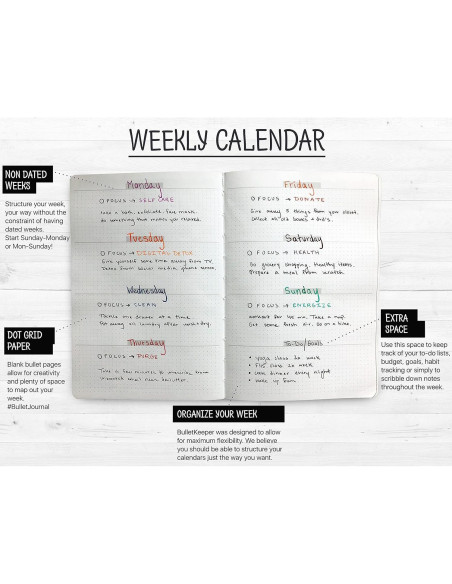 WEEKLY CALENDAR
NON DATED
WEEKS
Structure your week,
your way without the
constraint of having
dated weeks.
Start Sunday-Monday
or Mon-Sunday!
DOT GRID
PAPER
Blank bullet pages
allow for creativity
and plenty of space
to map out your
week.
#BulletJournal
Monday
FOCUS → SELF CARE
Take a bath, exfoliate, face mask,
do something that makes you relaxed.
Tuesday
FOCUS → DIGITAL DETOX
Give yourself some time away from TV.
Detox from social media, phone
Wednesday
FOCUS → CLEAN
at a time
Put away laundry after
Thursday
FOCUS → PURGE
Take a few minutes to
Friday
FOCUS → DONATE
Give away 5 things from your closet.
Collect all old books + dvd's.
Saturday
FOCUS → HEALTH
Go grocery shopping. Healthy items.
Prepare a meal from scratch.
Sunday
FOCUS → ENERGIZE
workout for 20 min. Take a nap.
Get some fresh air. Go on a hike.
To-Do/Goals
• yoga class 2x week
2x week
dinner every night
• wake up 8am
EXTRA
SPACE
Use this space to keep
track of your to-do lists,
budget, goals, habit
tracking or simply to
scribble down notes
throughout the week.
ORGANIZE YOUR WEEK
BulletKeeper was designed to allow
for maximum flexibility. We believe
you should be able to structure your
calendars just the way you want.